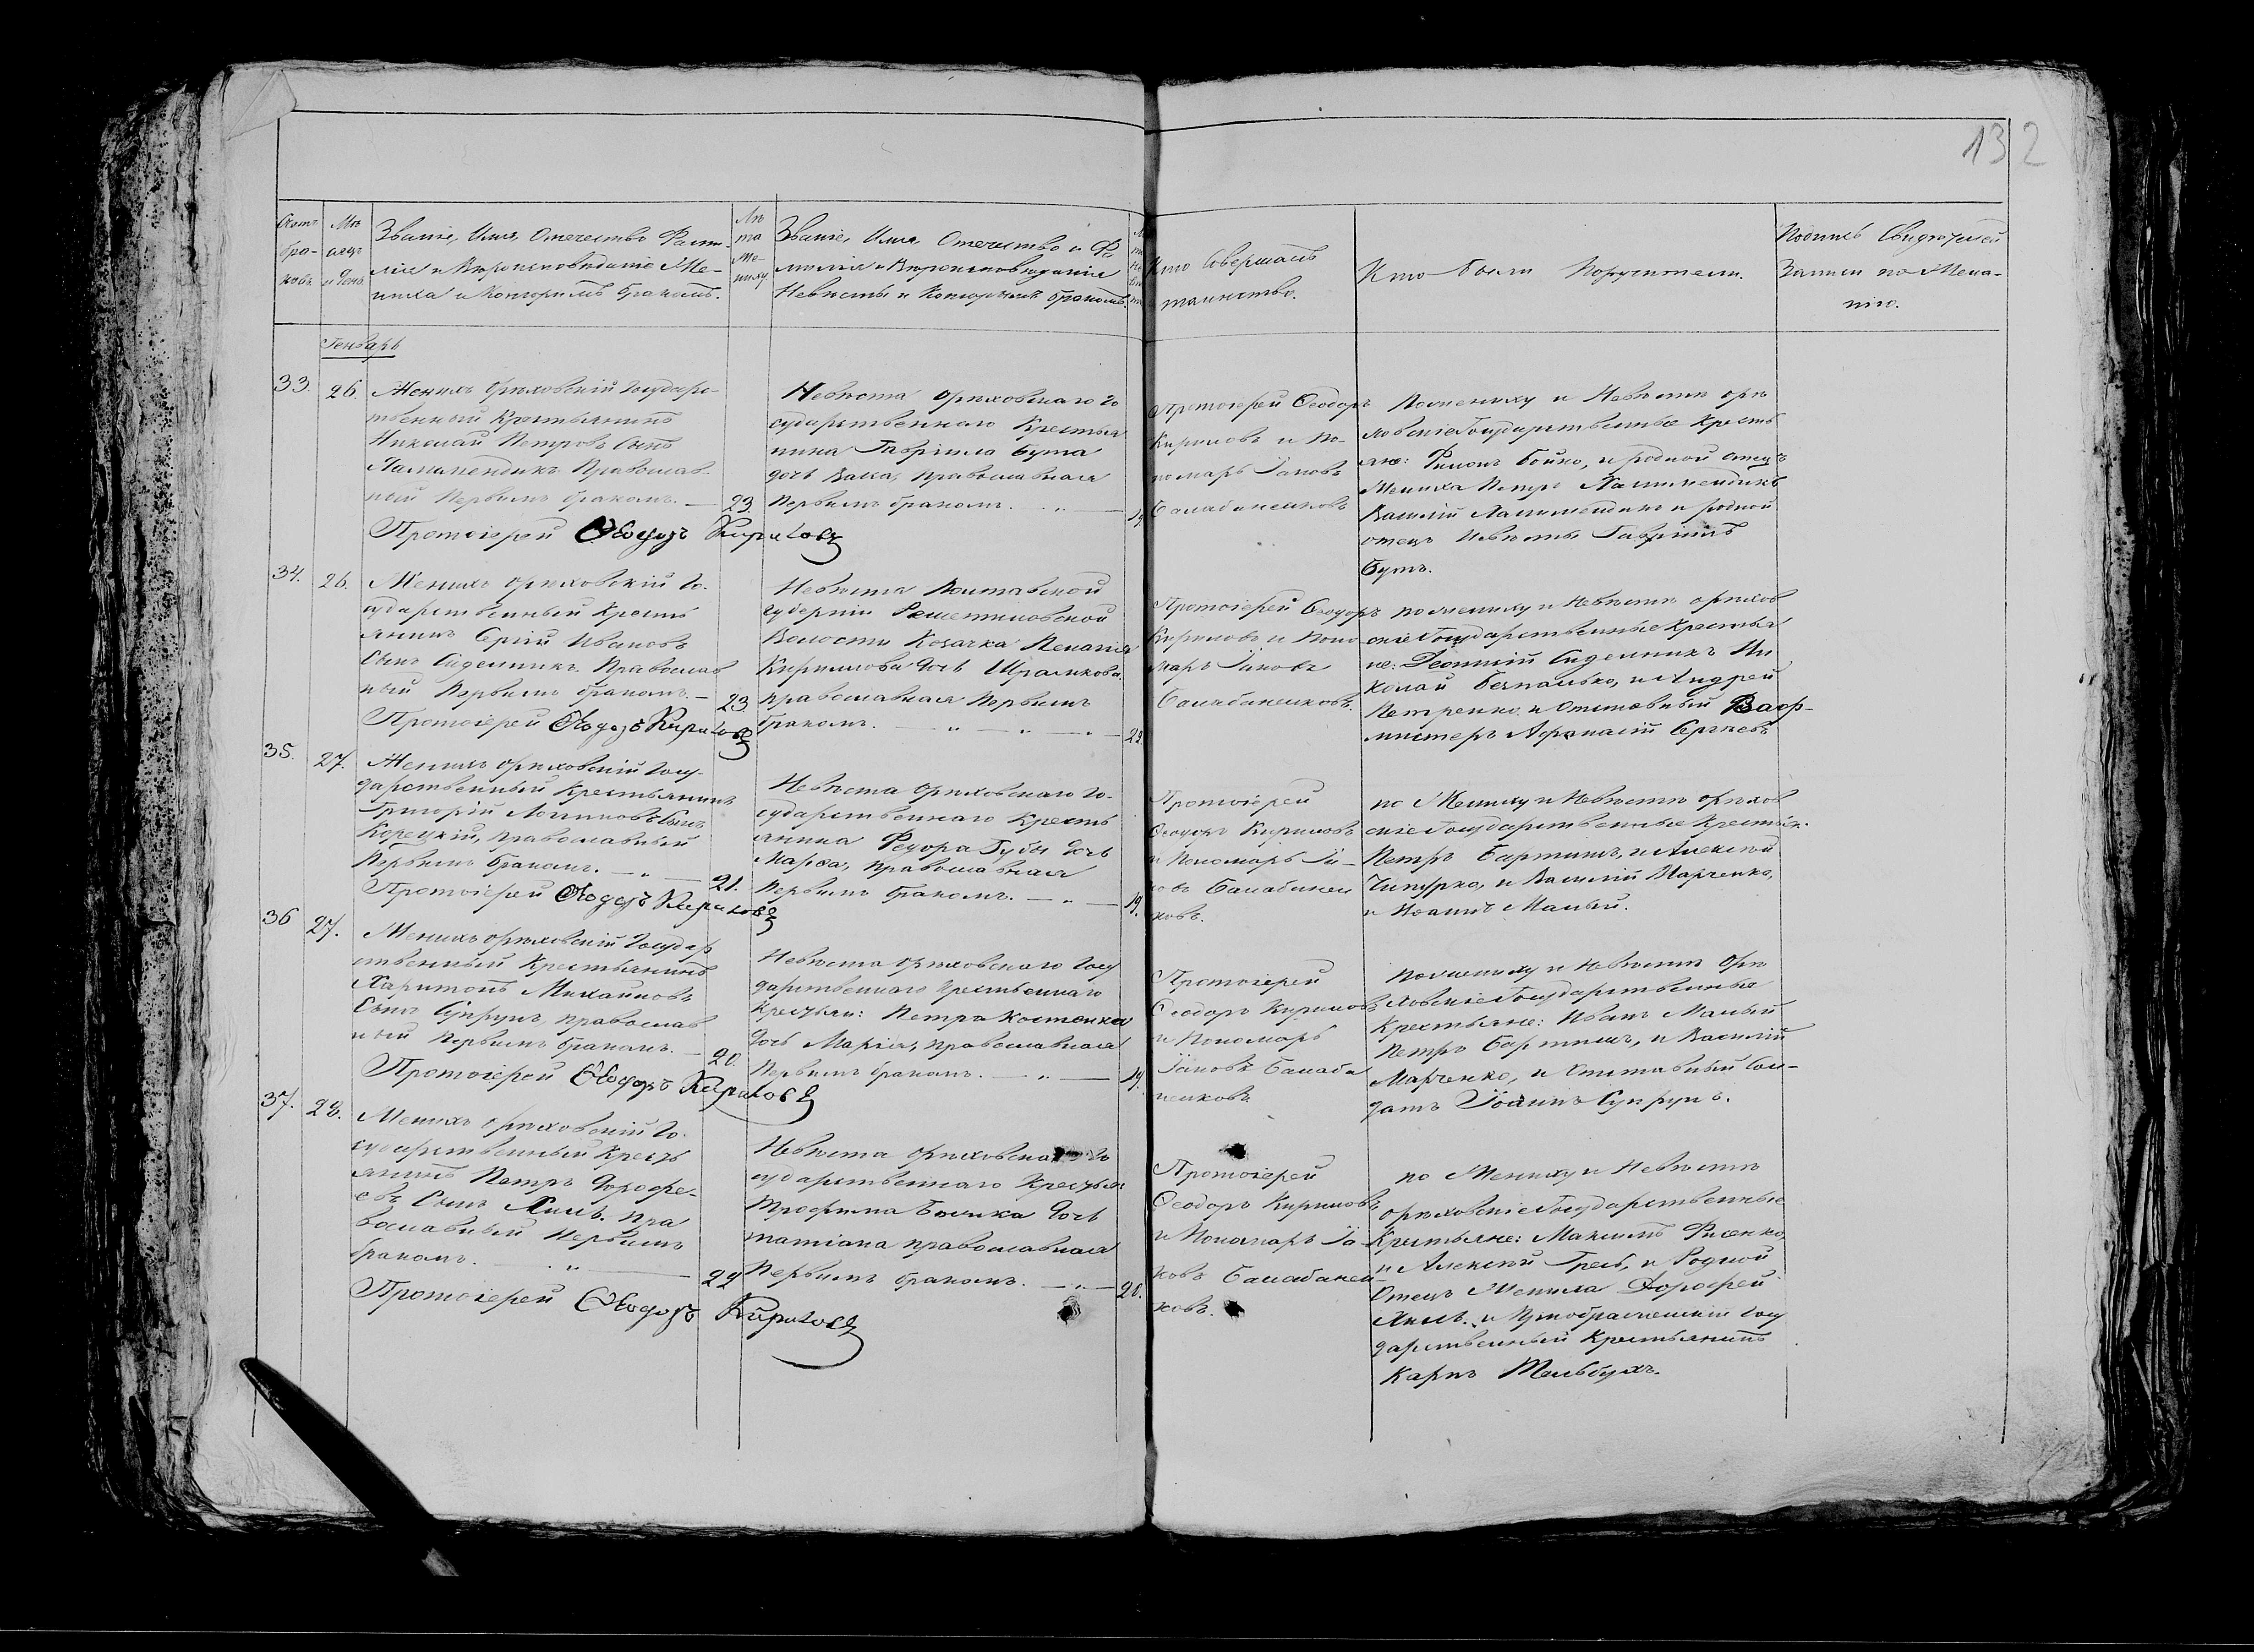 132
Счетъ
бра-
ковъ
Мѣ
сяцъ
и День
Званіе, Имя, Отечество Фами-
лія и Вѣроисповѣданіе Же-
ниха и Которымъ бракомъ.
Лѣ
та
Же-
ниху
Званіе, Имя, Отечество и Фа
милія и Вѣроисповѣданія
Невѣсты и Которымъ бракомъ.
Кто Совершалъ
таинство.
Кто были Поручители.
Подпись Свидѣтелей
Записи по Жела-
нію.
Генварь
33.
26
Женихъ Орѣховскій Государс-
твенный Крестьянинъ
Николай Петровъ Сынъ
Православ-
ный Первымъ бракомъ.
23.
Невѣста Орѣховскаго Го
сударственнаго Крестья
нина Гавріила Бута
дочь Васса, Православная
Первымъ бракомъ.
19.
Протоіерей Ѳеодоръ
Кириловъ и По-
номарь Іаковъ
Балабаненковъ
По жениху и Невѣстѣ орѣ
ховскіе Государственные Кресть
яне: Филипъ Бойко, и родной отецъ
Жениха Петръ
Василій и родной
отецъ Невѣсты Гавріилъ
Бутъ.
Протоіерей Ѳеодоръ Кириловъ
34.
26.
Женихъ орѣховскій Го-
сударственный Кресть
янинъ Сергій Ивановъ
Сынъ Сиделникъ Православ
ный Первымъ бракомъ.
23
Невѣста Полтавской
Губерніи Решетиловской
Волости Козачка Пелагія
Кириллова дочь
православная Первымъ
бракомъ.
22.
Протоіерей Ѳеодоръ
Кириловъ и Поно
марь Іаковъ
Балабаненковъ.
по жениху и Невѣстѣ орѣхов
скіе Государственные Крестья
не: Леонтій Сиделникъ Ни
колай и Андрей
Петренко и Отставный Вахр-
мистеръ Афанасій Сергѣевъ
Протоіерей Ѳеодоръ Кириловъ
35.
27.
Женихъ орѣховскій Госу-
дарственный Крестьянинъ
Григорій Логиновъ Сынъ
Корецкій, православный
Первымъ бракомъ.
21.
Невѣста Орѣховскаго Го-
сударственнаго Кресть
янина Федора Губы дочь
Марѳа, православная
Первымъ бракомъ.
19.
Протоіерей
Ѳеодоръ Кириловъ
и Пономарь Іа-
ковъ Балабанен
ковъ.
по Жениху и Невѣстѣ орѣхов
скіе Государственные Крестьян.
Петръ Бартишъ, и Алексѣй
Чипурко, и Василій Марченко,
и Іоаннъ Малый.
Протоіерей Ѳеодоръ Кириловъ
36
27.
Женихъ орѣховскій Государ
ственный Крестьянинъ
Харитонъ Михайловъ
Сынъ Супрунъ, православ
ный Первымъ бракомъ.
20.
Невѣста орѣховскаго Госу
дарственнаго
Крестьян: Петра Костенка
дочь Марія, православная
Первымъ бракомъ.
19.
Протоіерей
Ѳеодоръ Кириловъ
и Пономарь
Іаковъ Балаба
ненковъ
по жениху и Невѣстѣ Орѣ
ховскіе Государственные
Крестьяне: Иванъ Малый
Петръ Бартишъ, и Василій
Марченко, и Отставный Сол-
датъ Іоаннъ Супрунъ.
Протоіерей Ѳеодоръ Кириловъ
37.
28.
Женихъ орѣховскій Го-
сударственный Кресть
янинъ Петръ Дорофе-
евъ Сынъ Пра
вославный Первымъ
бракомъ.
22
Невѣста орѣховскаго Го
сударственнаго Крестьян
Трофима дочь
татіана православная
Первымъ бракомъ.
20.
Протоіерей
Ѳеодоръ Кириловъ
и Пономарь Іа-
ковъ Балабанен-
ковъ.
по Жениху и Невѣстѣ
орѣховскіе Государственные
Крестьяне: Максимъ Фисенко,
и Алексѣй Гребъ, и Родной
Отецъ Жениха Дорофей
и Преображенскій Госу
дарственный Крестьянинъ
Карпъ
Протоіерей Ѳеодоръ Кириловъ